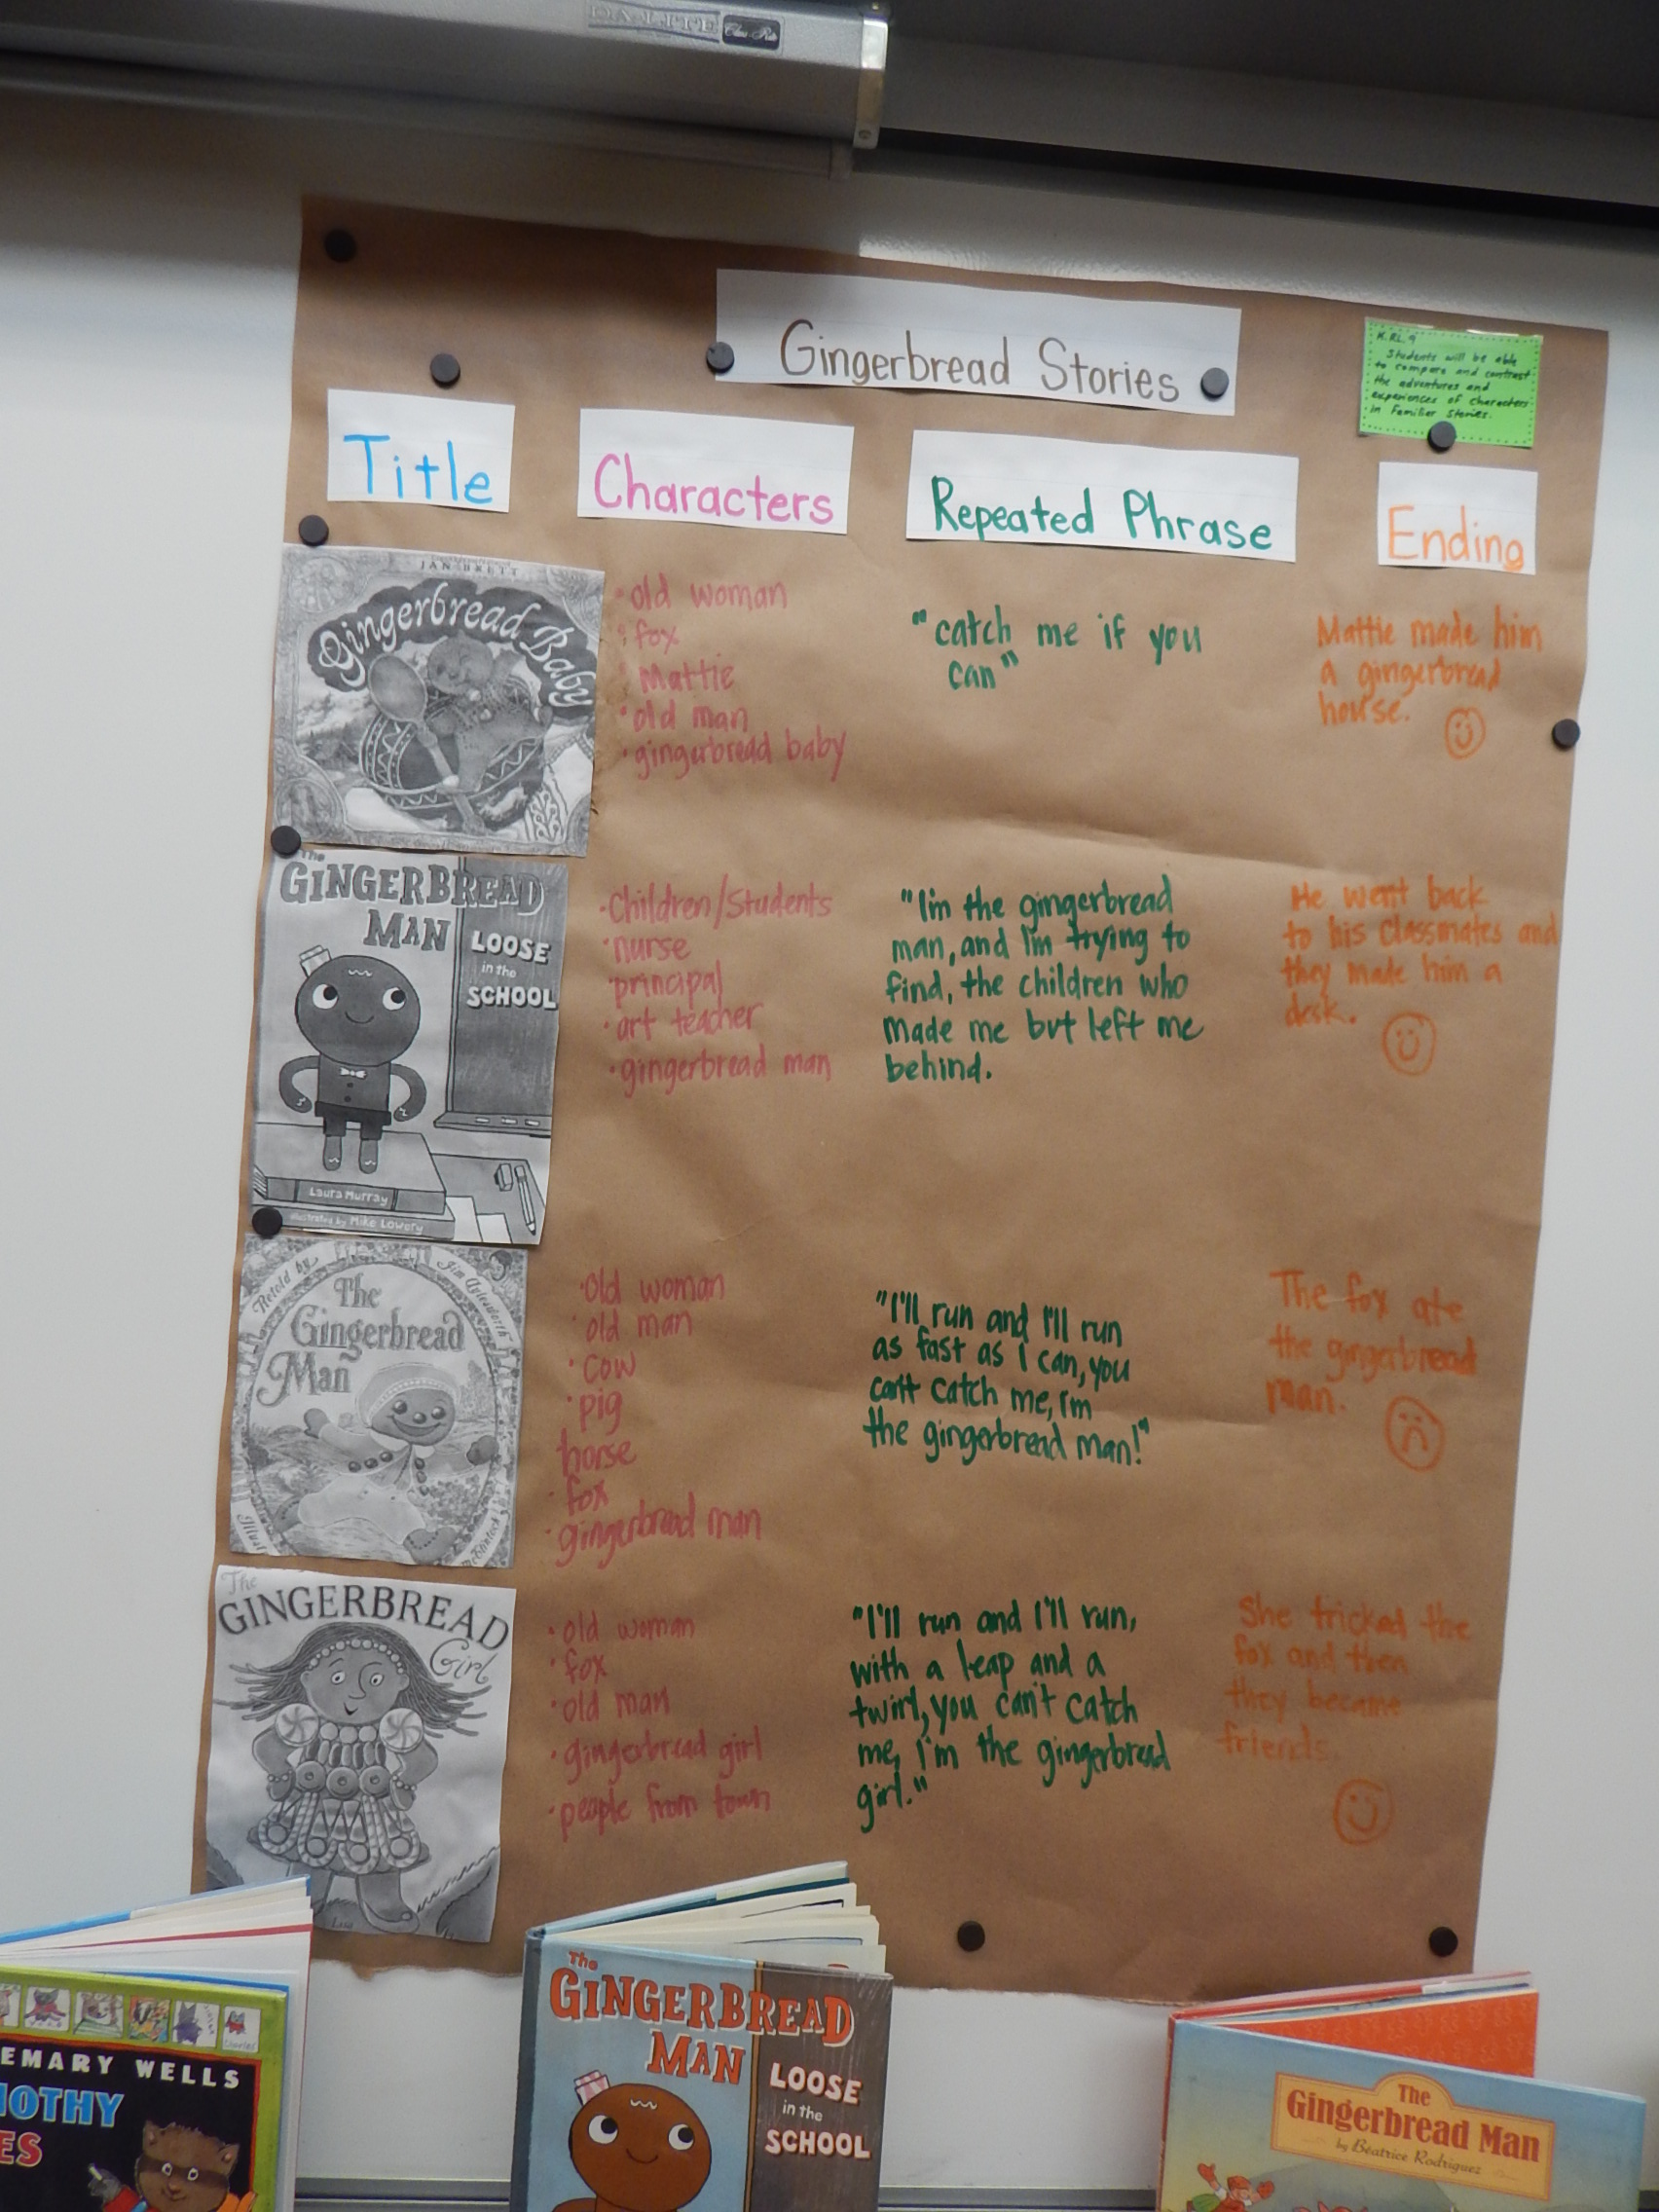 DA-LITE
Gingerbread Stories
K.RL.9
Students will be able
to compare and contrast
the adventures and
experiences of characters
in familiar stories.
Title
Characters
Repeated Phrase
Ending
JAN BRETT
Gingerbread Baby
• old woman
• fox
• Mattie
• old man
• gingerbread baby
"catch me if you
can"
Mattie made him
a gingerbread
house.
The
GINGERBREAD
MAN
LOOSE
in the
SCHOOL
Laura Murray
illustrated by Mike Lowery
• Children/Students
• nurse
• principal
• art teacher
• gingerbread man
"I'm the gingerbread
man, and I'm trying to
find, the children who
made me but left me
behind.
He went back
to his classmates and
they made him a
desk.
Retold by Jim Aylesworth
The
Gingerbread
Man
McClintock
• old woman
• old man
• cow
• pig
horse
• fox
• gingerbread man
"I'll run and I'll run
as fast as I can, you
can't catch me, I'm
the gingerbread man!"
The fox ate
the gingerbread
man.
The
GINGERBREAD
Girl
• old woman
• fox
• old man
• gingerbread girl
• people from town
"I'll run and I'll run,
with a leap and a
twirl, you can't catch
me, I'm the gingerbread
girl."
She tricked the
fox and then
they became
friends.
EMARY WELLS
OTHY
ES
The
GINGERBREAD
MAN
LOOSE
in the
SCHOOL
The
Gingerbread Man
by Beatrice Rodriguez